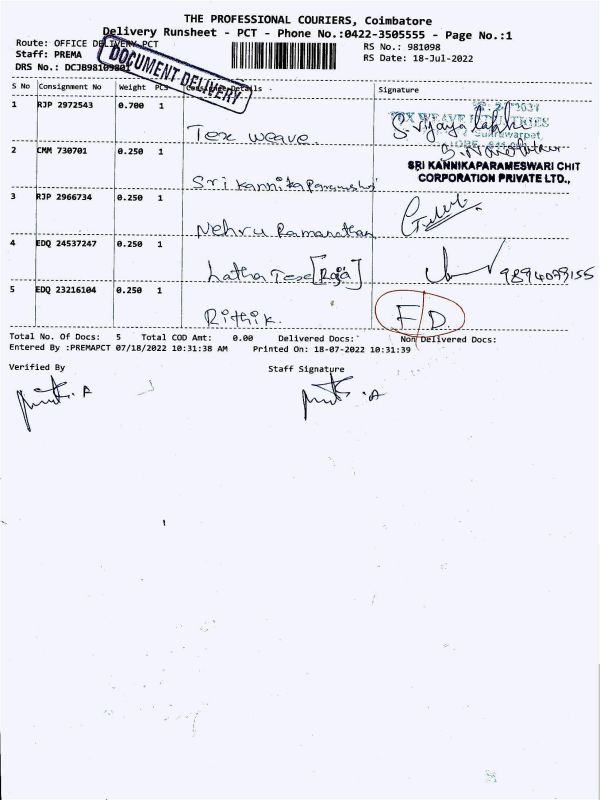 THE PROFESSIONAL COURIERS, Coimbatore
Delivery Runsheet - PCT - Phone No.:0422-3505555 - Page No.:1
Route: OFFICE DELIVERY PCT
RS No.: 981098
Staff: PREMA
RS Date: 18-Jul-2022
DRS No.: DCJB981098
DOCUMENT DELIVERY
S No Consignment No Weight PCS Consignee Details Signature
1 RJP 2972543 0.700 1
Tex weave. S. Vijaya lakshmi
TEX WEAVE INDUSTRIES
2 CMM 730701 0.250 1
SRI KANNIKAPARAMESWARI CHIT
CORPORATION PRIVATE LTD.,
Sri kannikaparameshwari
3 RJP 2966734 0.250 1
Nehru Ramanathan
4 EDQ 24537247 0.250 1
Latha Tese [Raja] 9894099155
5 EDQ 23216104 0.250 1
Rithik. F/D.
Total No. Of Docs: 5 Total COD Amt: 0.00 Delivered Docs: Non Delivered Docs:
Entered By :PREMAPCT 07/18/2022 10:31:38 AM Printed On: 18-07-2022 10:31:39
Verified By Staff Signature